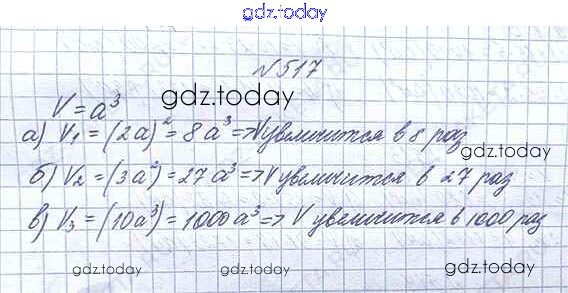 gdz.today
№517
V = a³
gdz.today
а) V₁ = (2a)² = 8a³ => V увеличится в 8 раз
gdz.today
б) V₂ = (3a²) = 27a³ => V увеличится в 27 раз
в) V₃ = (10a³) = 1000a³ => V увеличится в 1000 раз
gdz.today gdz.today gdz.today